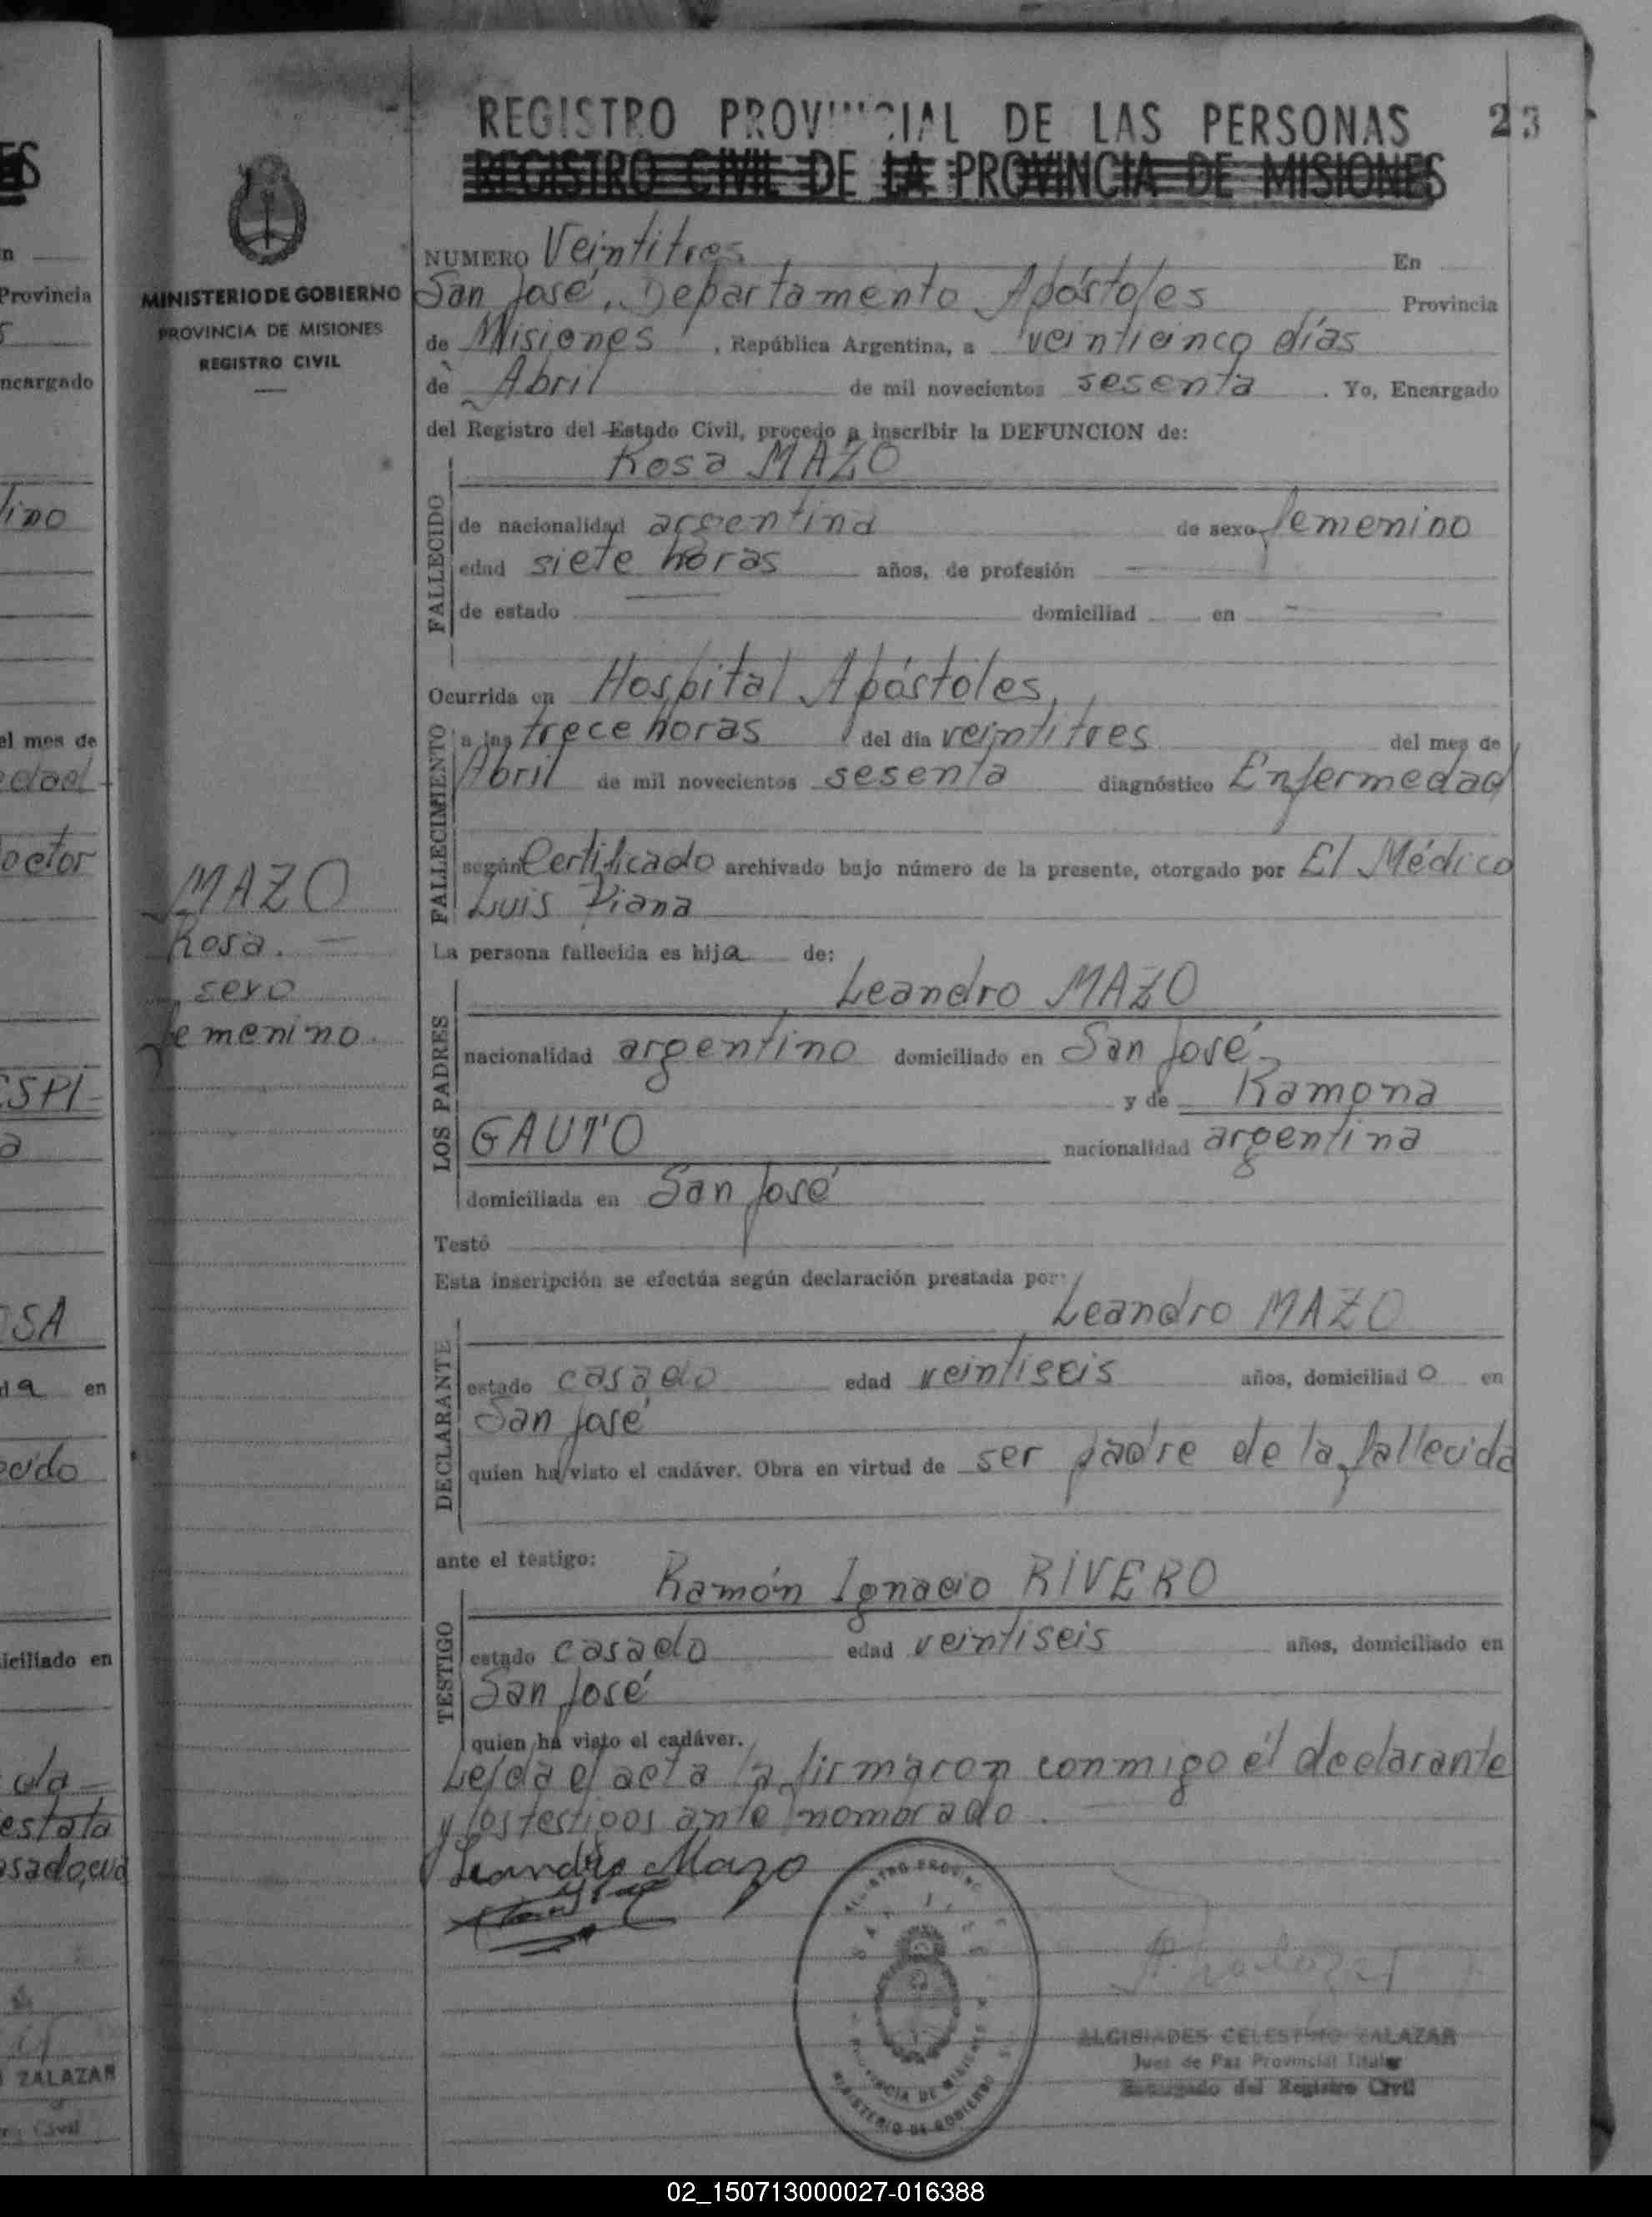 REGISTRO PROVINCIAL DE LAS PERSONAS 23
REGISTRO CIVIL DE LA PROVINCIA DE MISIONES
MINISTERIO DE GOBIERNO
PROVINCIA DE MISIONES
REGISTRO CIVIL
NUMERO Veintitres En
San José, Departamento Apóstoles Provincia
de Misiones, República Argentina, a veinticinco días
de Abril de mil novecientos sesenta. Yo, Encargado
del Registro del Estado Civil, procedo a inscribir la DEFUNCION de:
Rosa MAZO
FALLECIDO
de nacionalidad argentina de sexo femenino
edad siete horas años, de profesión —
de estado — domiciliad en —
Ocurrida en Hospital Apóstoles,
FALLECIMIENTO
a las trece horas del día veintitres del mes de
Abril de mil novecientos sesenta diagnóstico Enfermedad
según Certificado archivado bajo número de la presente, otorgado por El Médico
Luis Viana
MAZO
Rosa. —
sexo
femenino.
La persona fallecida es hija de:
Leandro MAZO
LOS PADRES
nacionalidad argentino domiciliado en San José,
y de Ramona
GAUTO nacionalidad argentina
domiciliada en San José
Testó
Esta inscripción se efectúa según declaración prestada por:
Leandro MAZO
DECLARANTE
estado casado edad veintiseis años, domiciliad o en
San José
quien ha visto el cadáver. Obra en virtud de ser padre de la fallecida
ante el testigo:
Ramón Ignacio RIVERO
TESTIGO
estado casado edad veintiseis años, domiciliado en
San José
quien ha visto el cadáver.
Leída el acta la firmaron conmigo el declarante
y los testigos ante nombrado.
Leandro Mazo
REGISTRO PROVINC
SAN JOSE
PROVINCIA DE MISIONES
MINISTERIO DE GOBIERNO
ALCIBIADES CELESTINO ZALAZAR
Juez de Paz Provincial Titular
Encargado del Registro Civil
n
Provincia
ncargado
tino
el mes de
edad
octor
ESPI-
a
OSA
da en
ecido
iciliado en
da
estata
asado,
ZALAZAR
Civil
02_150713000027-016388